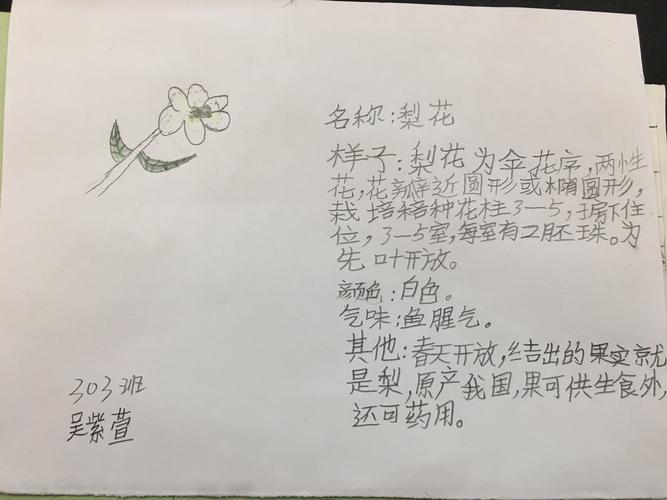 名称:梨花
样子:梨花为伞花序,两性
花,花瓣近圆形或椭圆形,
栽培种花柱3—5,子房下位
位,3—5室,每室有2胚珠。为
先叶开放。
颜色:白色。
气味:鱼腥气。
其他:春天开放,结出的果实就
是梨,原产我国,果可供生食外,
还可药用。
303班
吴紫萱